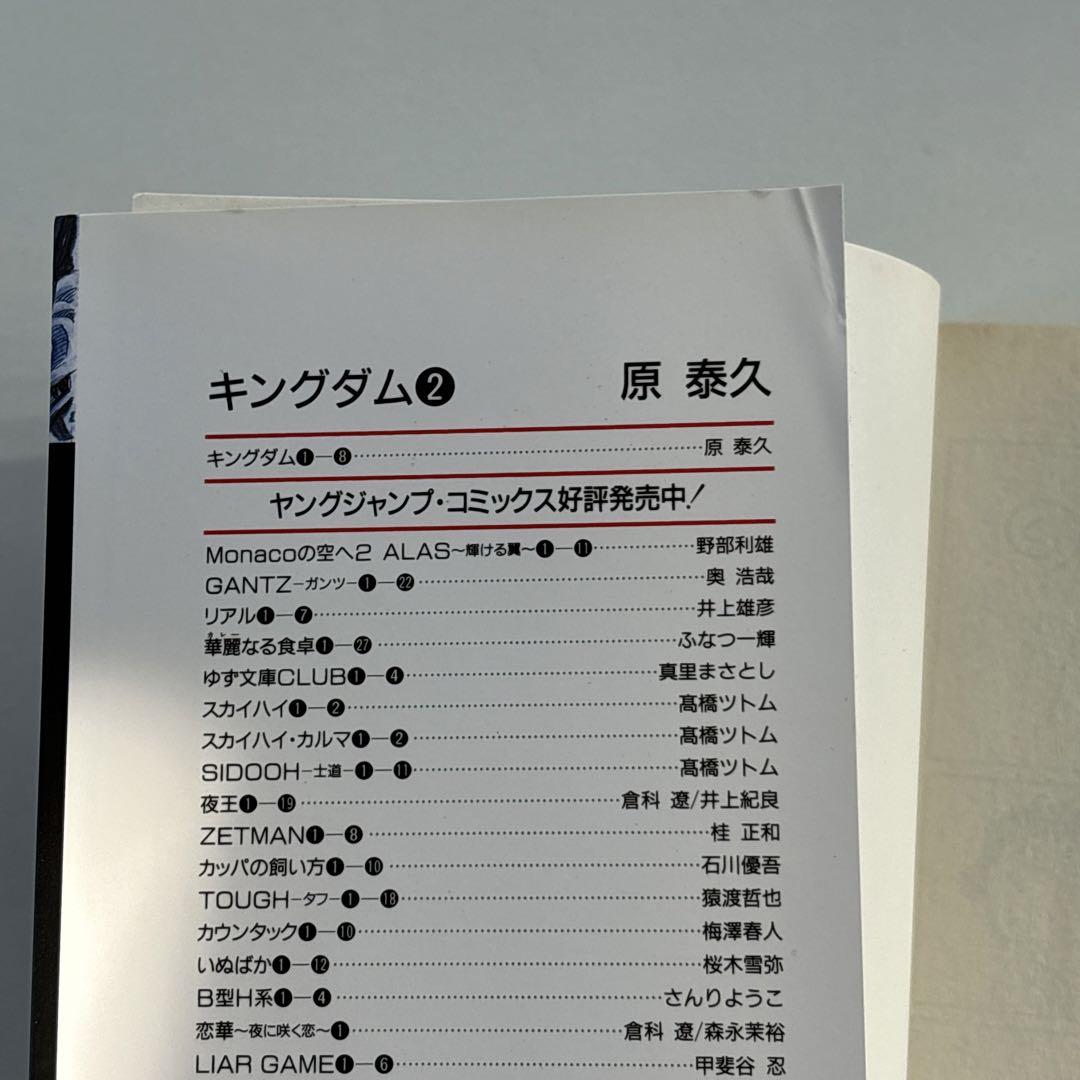 キングダム❷ 原 泰久
キングダム❶―❽……………原 泰久
ヤングジャンプ・コミックス好評発売中!
Monacoの空へ2 ALAS～輝ける翼～❶―⓫……………野部利雄
GANTZ―ガンツ―❶―㉒……………奥 浩哉
リアル❶―❼……………井上雄彦
カレー
華麗なる食卓❶―㉗……………ふなつ一輝
ゆず文庫CLUB❶―❹……………真里まさとし
スカイハイ❶―❷……………髙橋ツトム
スカイハイ・カルマ❶―❷……………髙橋ツトム
SIDOOH―士道―❶―⓫……………髙橋ツトム
夜王❶―⓳……………倉科 遼/井上紀良
ZETMAN❶―❽……………桂 正和
カッパの飼い方❶―❿……………石川優吾
TOUGH―タフ―❶―⓲……………猿渡哲也
カウンタック❶―❿……………梅澤春人
いぬばか❶―⓬……………桜木雪弥
B型H系❶―❹……………さんりようこ
恋華～夜に咲く恋～❶……………倉科 遼/森永茉裕
LIAR GAME❶―❻……………甲斐谷 忍